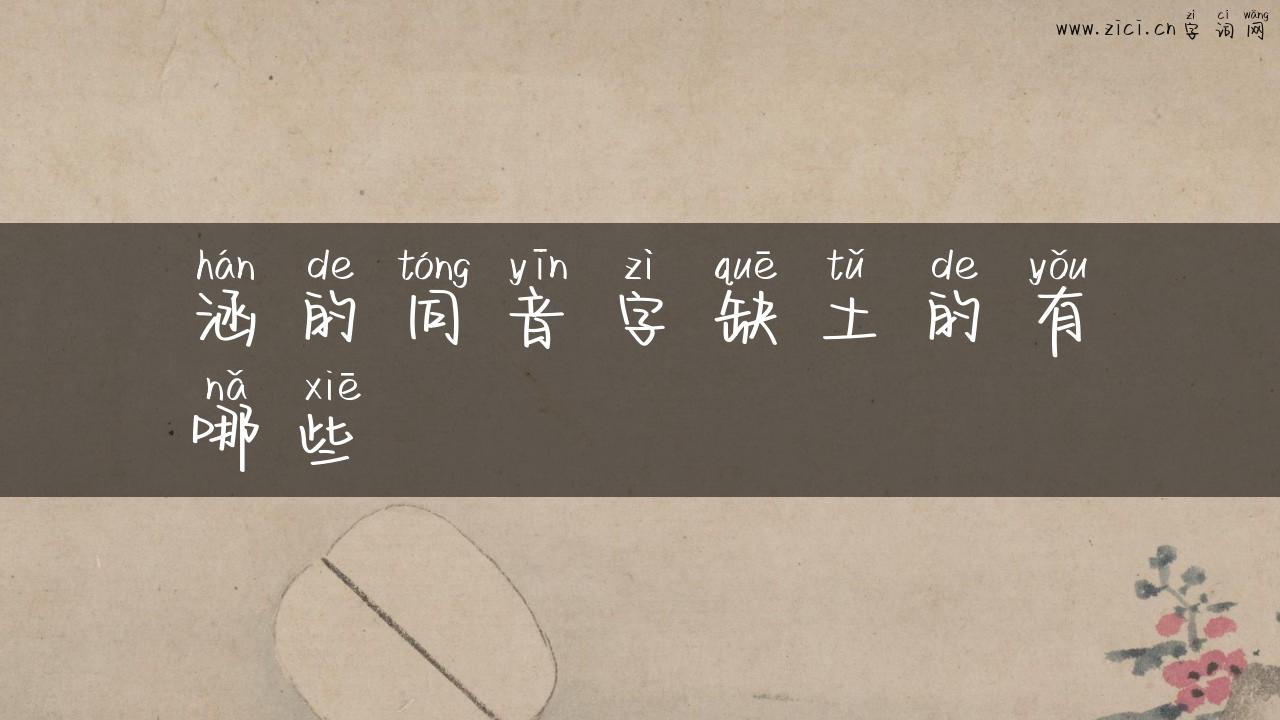 zì cí wǎng
www.zici.cn 字词网
hán de tóng yīn zì quē tǔ de yǒu
涵的同音字缺土的有
nǎ xiē
哪些